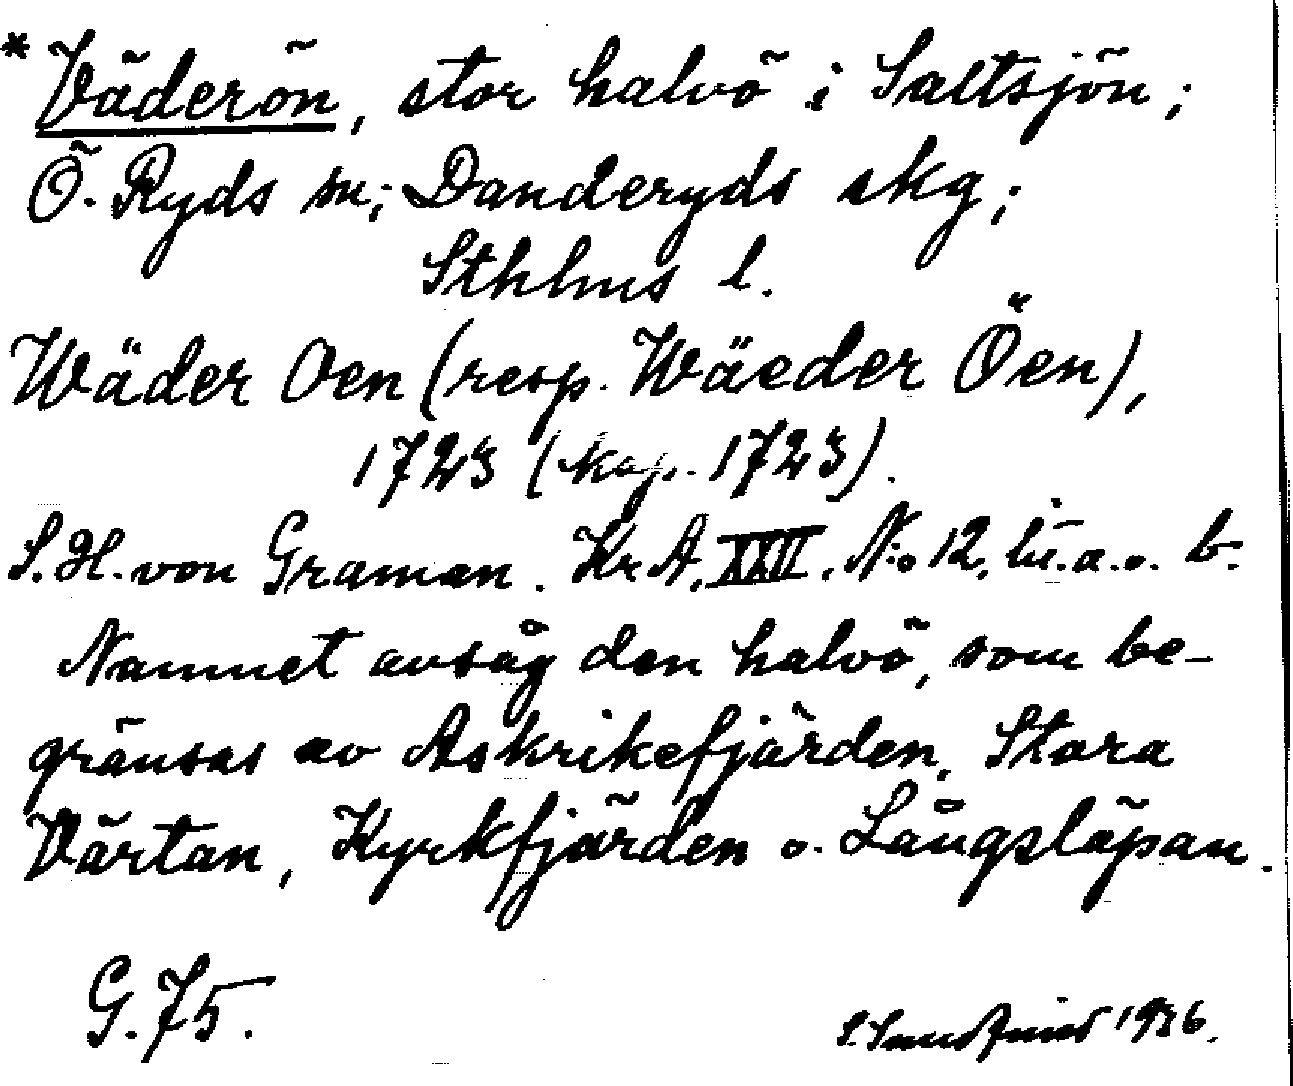 *Väderön, stor halvö i Saltsjön;
Ö. Ryds sn; Danderyds skg;
Sthlms l.
Wäder Oen (resp. Wäeder Öen),
1723 (kop. 1723).
S. H. von Graman. Kr A, XXII. N:o 12, lit. a. o. b.
Namnet avsåg den halvö, som be-
gränsas av Askrikefjärden, Stora
Värtan, Kyrkfjärden o. Långsläpan.
G. 75.
1936.